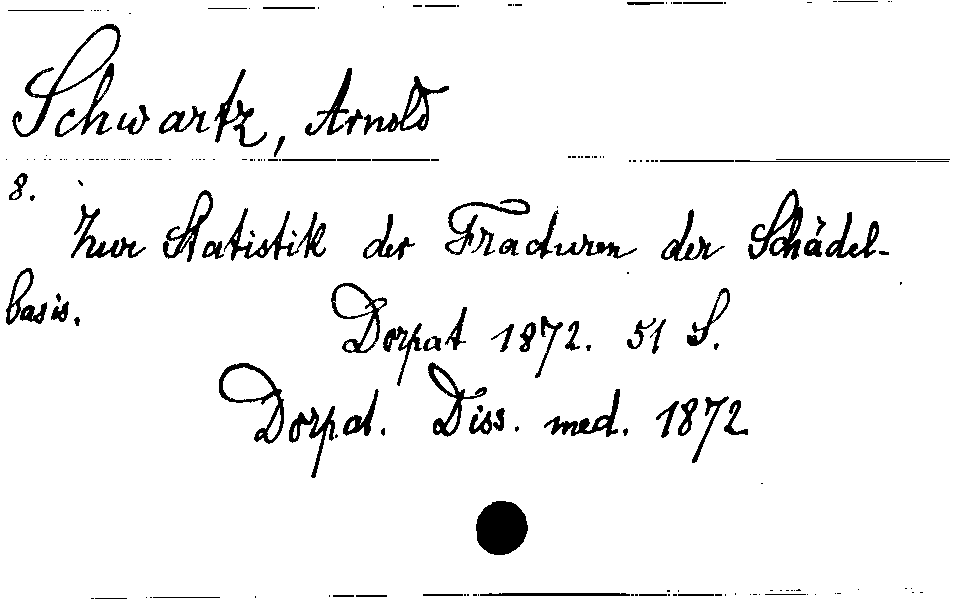 Schwartz, Arnold
8.
Zur Statistik der Fracturen der Schädel-
basis.
Dorpat 1872. 51 S.
Dorpat. Diss. med. 1872